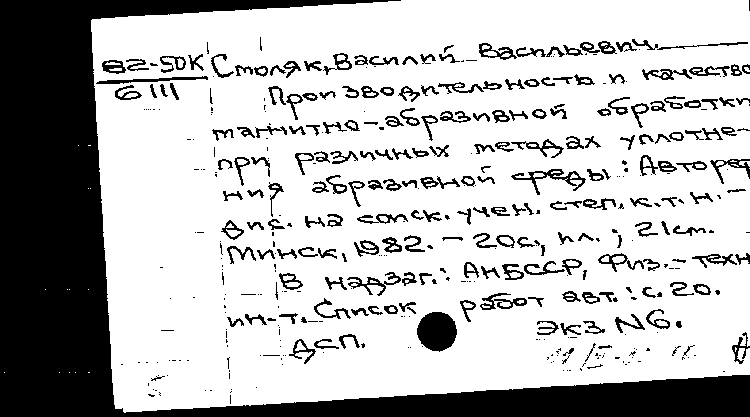 82-5DK Столяк, Василий Васильевич.
6111
Производительность и качество
магнитно-абразивной обработки
при различных методах уплотне-
ния абразивной среды: Автореф.
дис. на соиск. учен. степ. к.т.н. -
Минск, 1982. - 20с., ил.; 21см.
В надзаг.: АНБССР, Физ.-техн.
ин-т. Список работ авт.: с. 20.
ДСП. Экз N6.